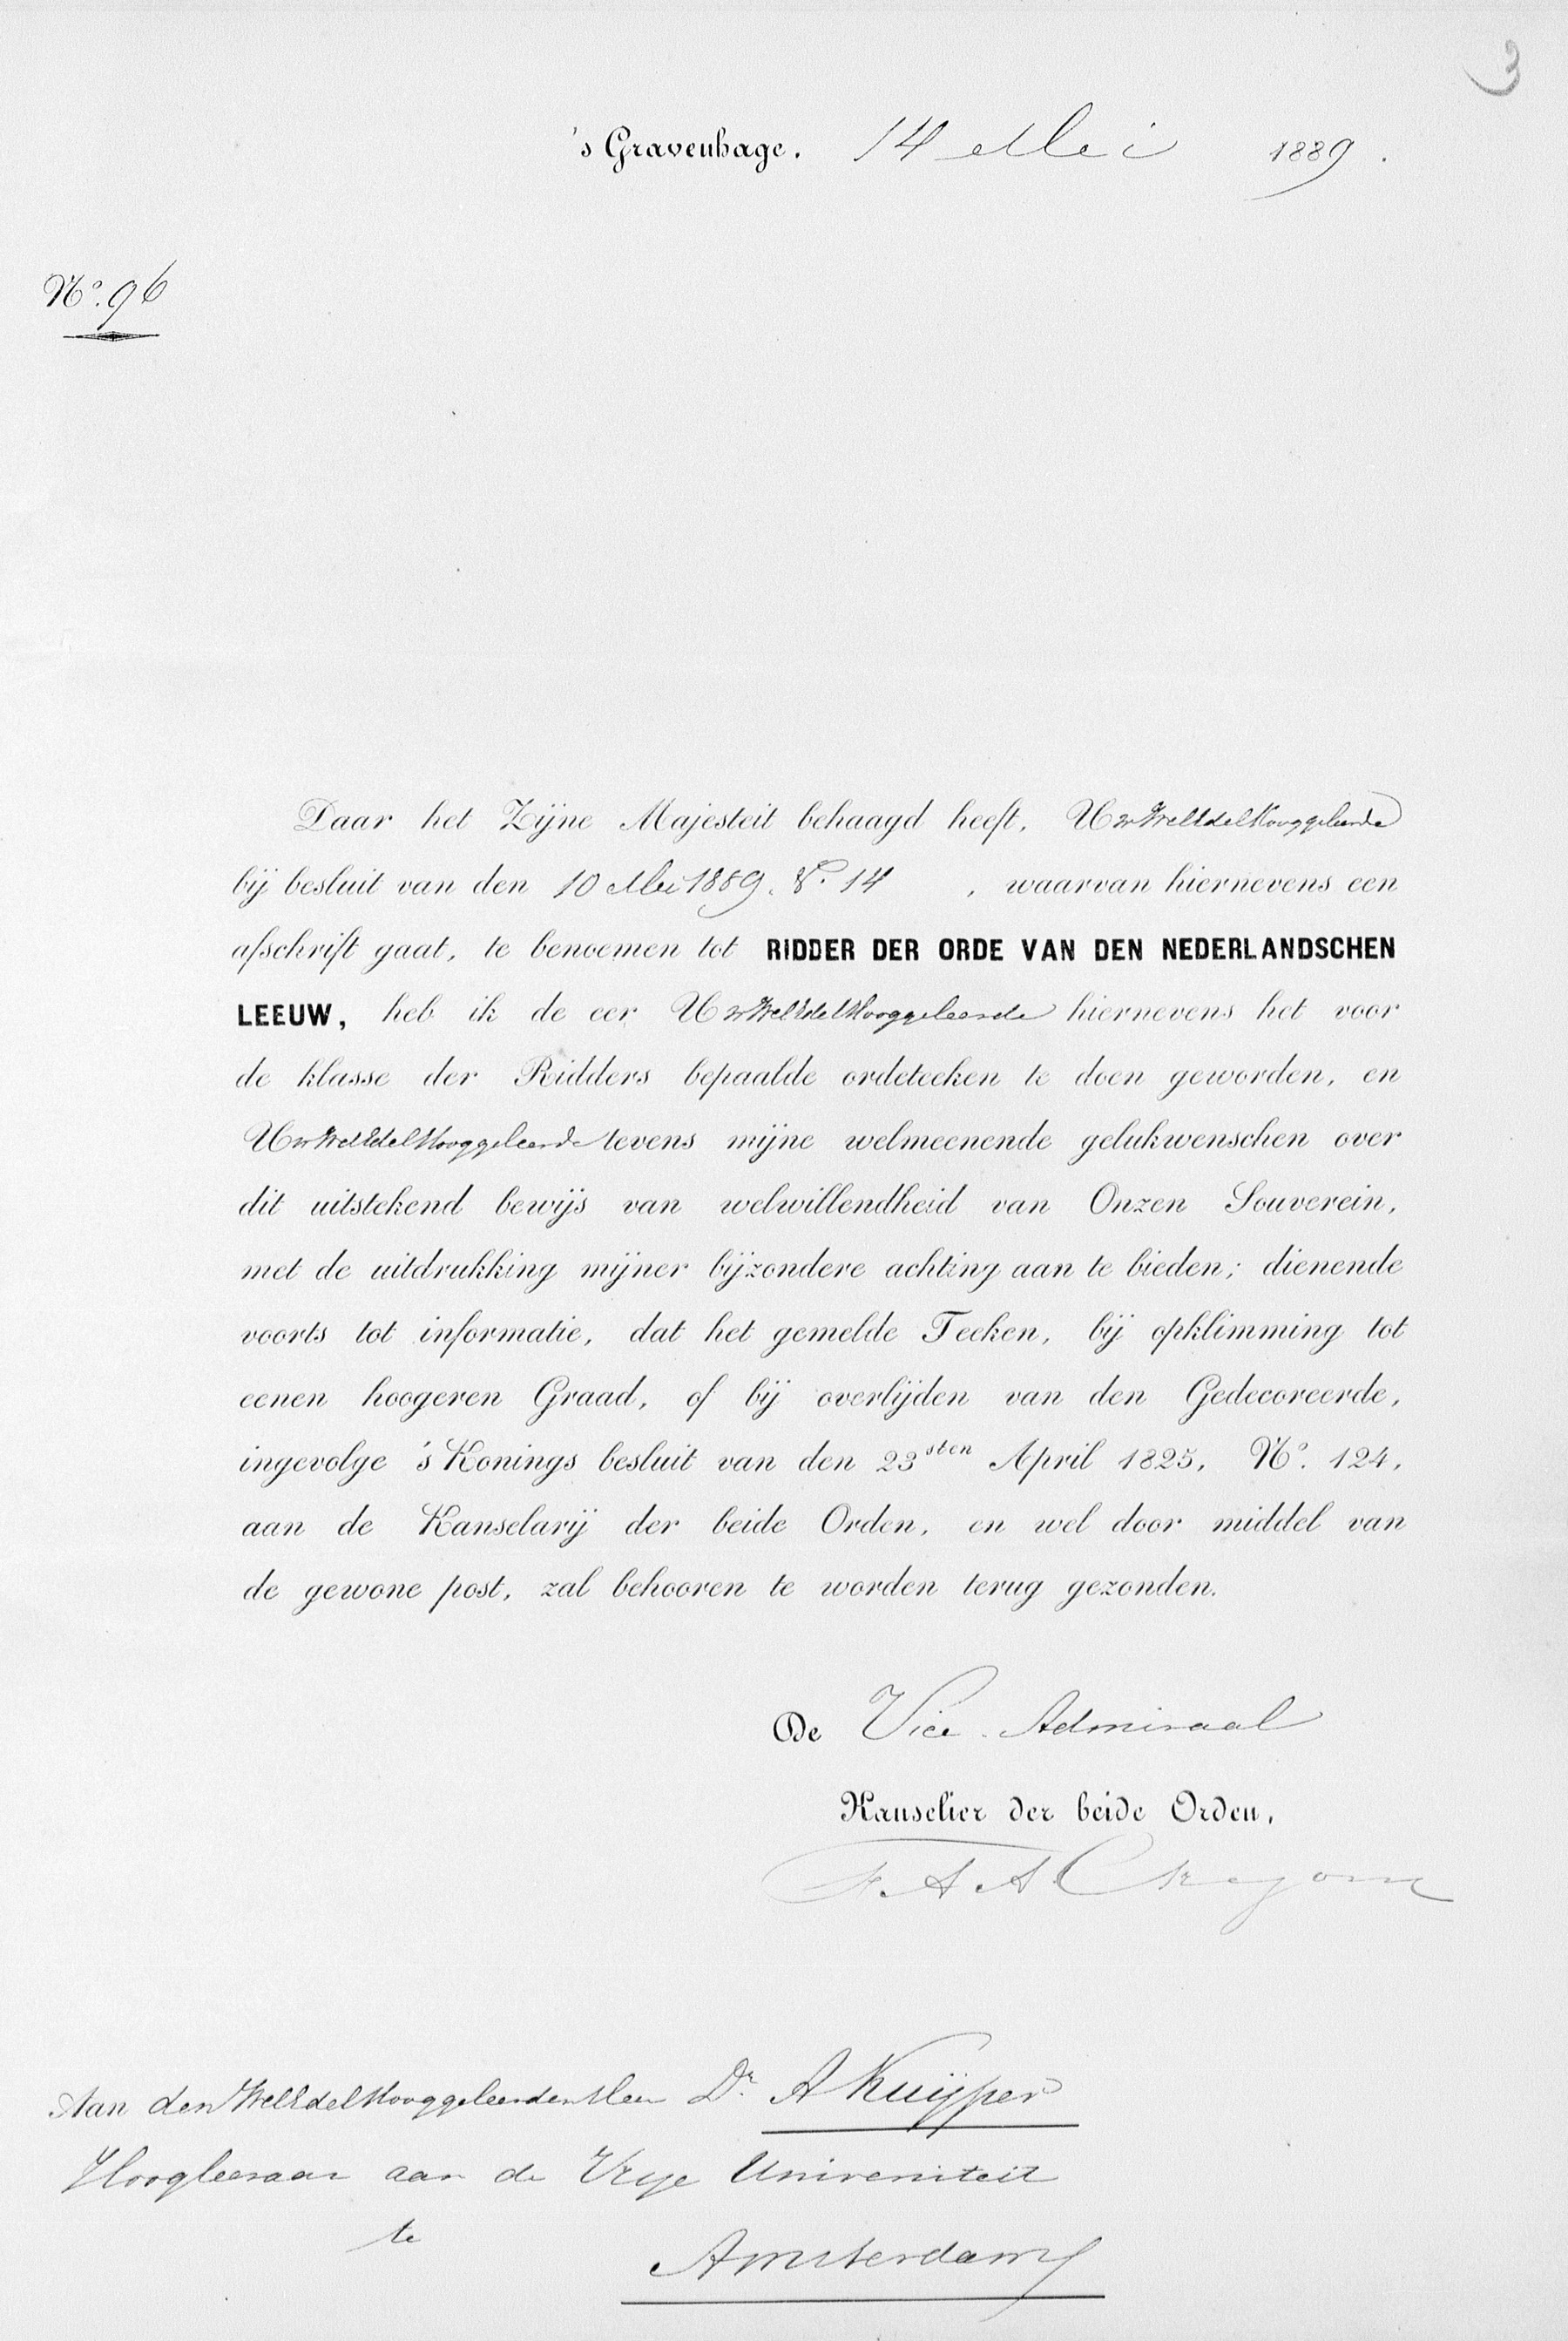 3
's Gravenhage, 14 Mei 1889.
No. 96
Daar het Zijne Majesteit behaagd heeft, UwWelEdelHooggeleerde
bij besluit van den 10 Mei 1889. No. 14, waarvan hiernevens een
afschrift gaat, te benoemen tot RIDDER DER ORDE VAN DEN NEDERLANDSCHEN
LEEUW, heb ik de eer UwWelEdelHooggeleerde hiernevens het voor
de klasse der Ridders bepaalde ordeteeken te doen geworden, en
UwWelEdelHooggeleerde tevens mijne welmeenende gelukwenschen over
dit uitstekend bewijs van welwillendheid van Onzen Souverein,
met de uitdrukking mijner bijzondere achting aan te bieden; dienende
voorts tot informatie, dat het gemelde Teeken, bij opklimming tot
eenen hoogeren Graad, of bij overlijden van den Gedecoreerde,
ingevolge 's Konings besluit van den 23sten April 1825, No. 124,
aan de Kanselarij der beide Orden, en wel door middel van
de gewone post, zal behooren te worden terug gezonden.
De Vice-Admiraal
Kanselier der beide Orden,
Aan den WelEdelHooggeleerden Heer Dr. A Kuijper
Hoogleeraar aan de Vrije Universiteit
te
Amsterdam